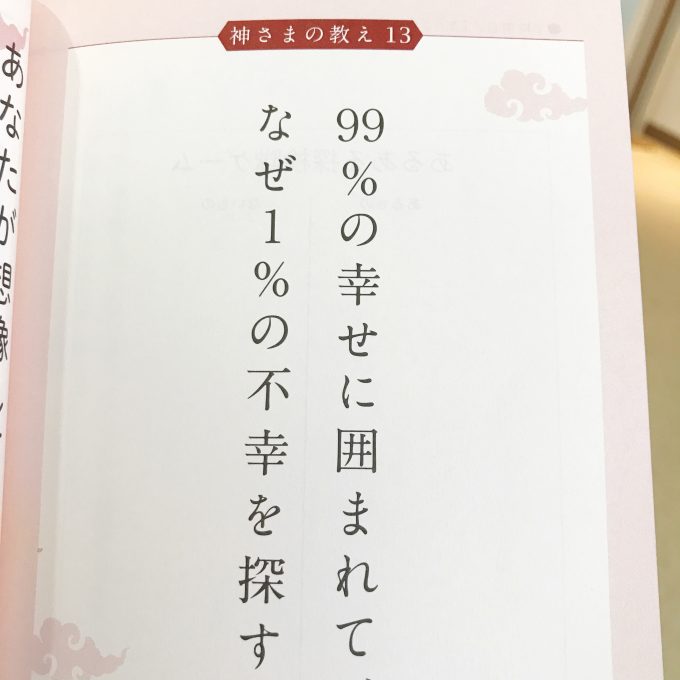 神さまの教え 13
99%の幸せに囲まれて
なぜ1%の不幸を探す
あなたが想像